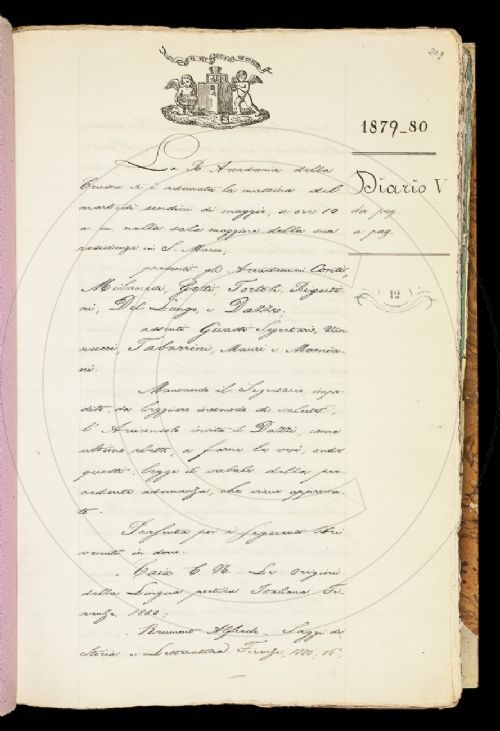 209
1879-80
Diario V
da pag.
a pag.
12
La R. Accademia della
Crusca si è adunata la mattina del
martedì undici di maggio, a ore 10
a. m. nella sala maggiore della sua
residenza in S. Marco;
presenti gli Accademici Conti,
Milanesi, Gotti, Tortoli, Rigutini
ni, Del Lungo, e Dazzi;
assenti Guasti Segretario, Van
nucci, Tabarrini, Mauri e Mamia
ni.
Mancando il Segretario, impe
dito da leggiero incomodo di salute,
l'Arciconsolo invita il Dazzi, come
ultimo eletto, a farne le veci, onde
questi legge il verbale della pre
cedente adunanza, che viene approva
to.
Presenta poi i seguenti libri
venuti in dono:
Caix C. N. Le Origini
della Lingua poetica Italiana. Fi
renze 1880;
Alfredo. Saggi di
Storia e Letteratura. Firenze, 1880, 16°;